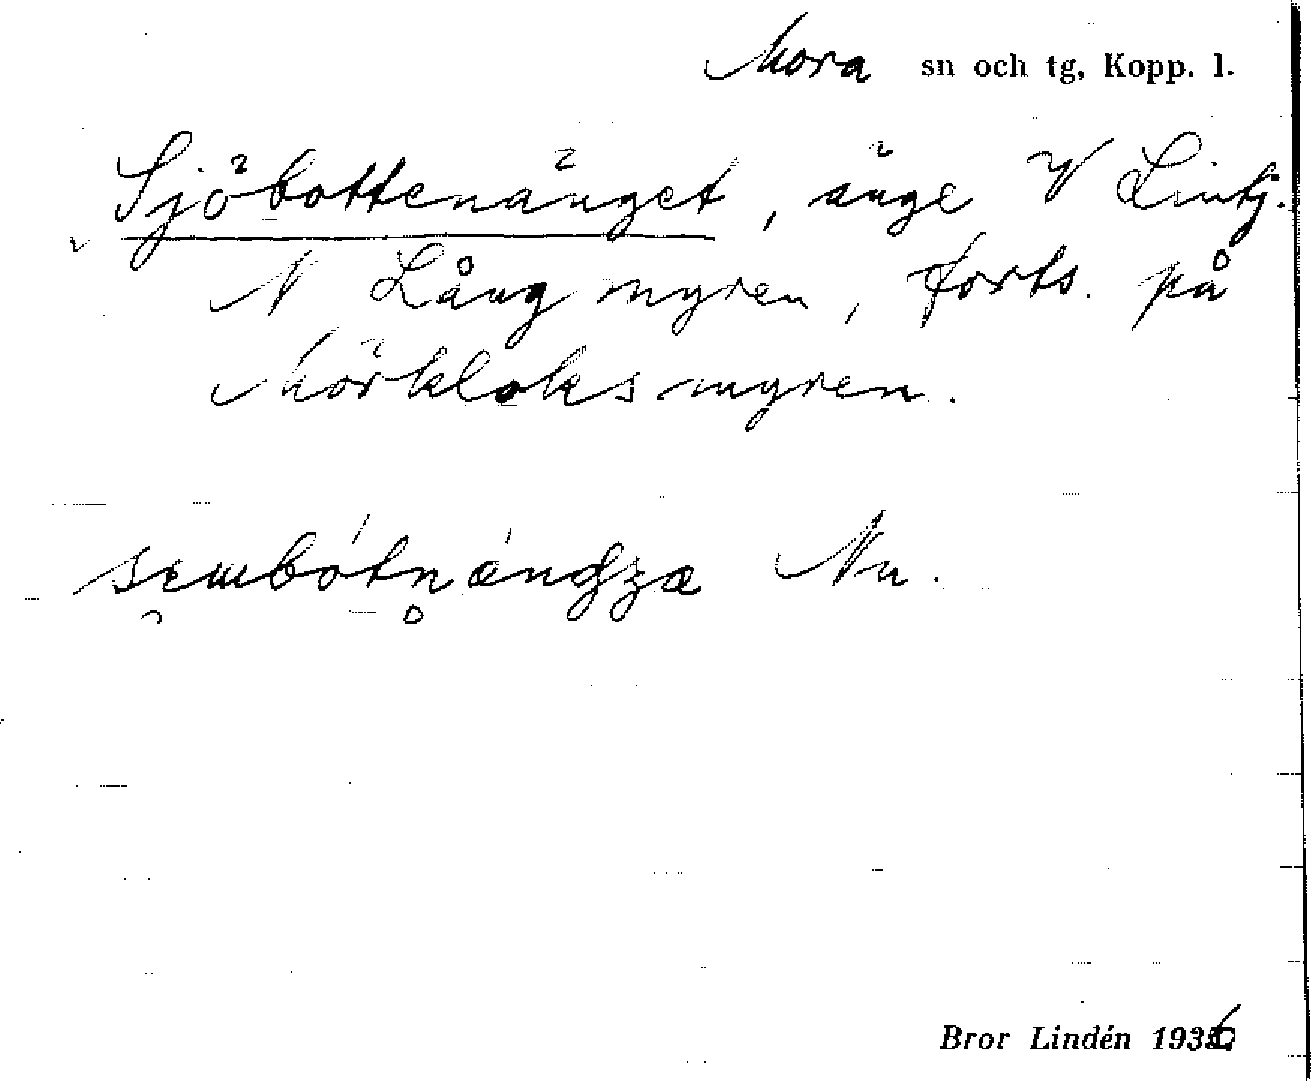 Mora sn och tg, Kopp. l.
Sjöbottenänget, änge V Lintj.
N Långmyren, forts. på
Mörkloksmyren.
Nu.
Bror Lindén 1936